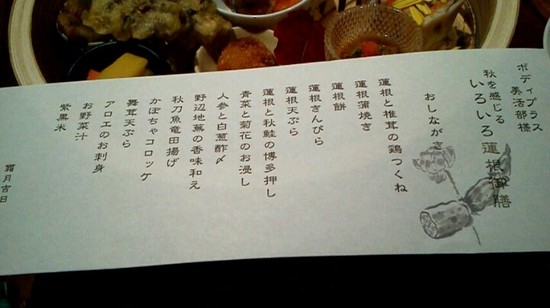 ボディプラス
美活部様
秋を感じる
いろいろ蓮根御膳
おしながき
蓮根と椎茸の鶏つくね
蓮根蒲焼き
蓮根餅
蓮根きんぴら
蓮根天ぷら
蓮根と秋鮭の博多押し
青菜と菊花のお浸し
人参と白葱酢〆
野辺地蕪の香味和え
秋刀魚竜田揚げ
かぼちゃコロッケ
舞茸天ぷら
アロエのお刺身
お野菜汁
紫黒米
霜月吉日